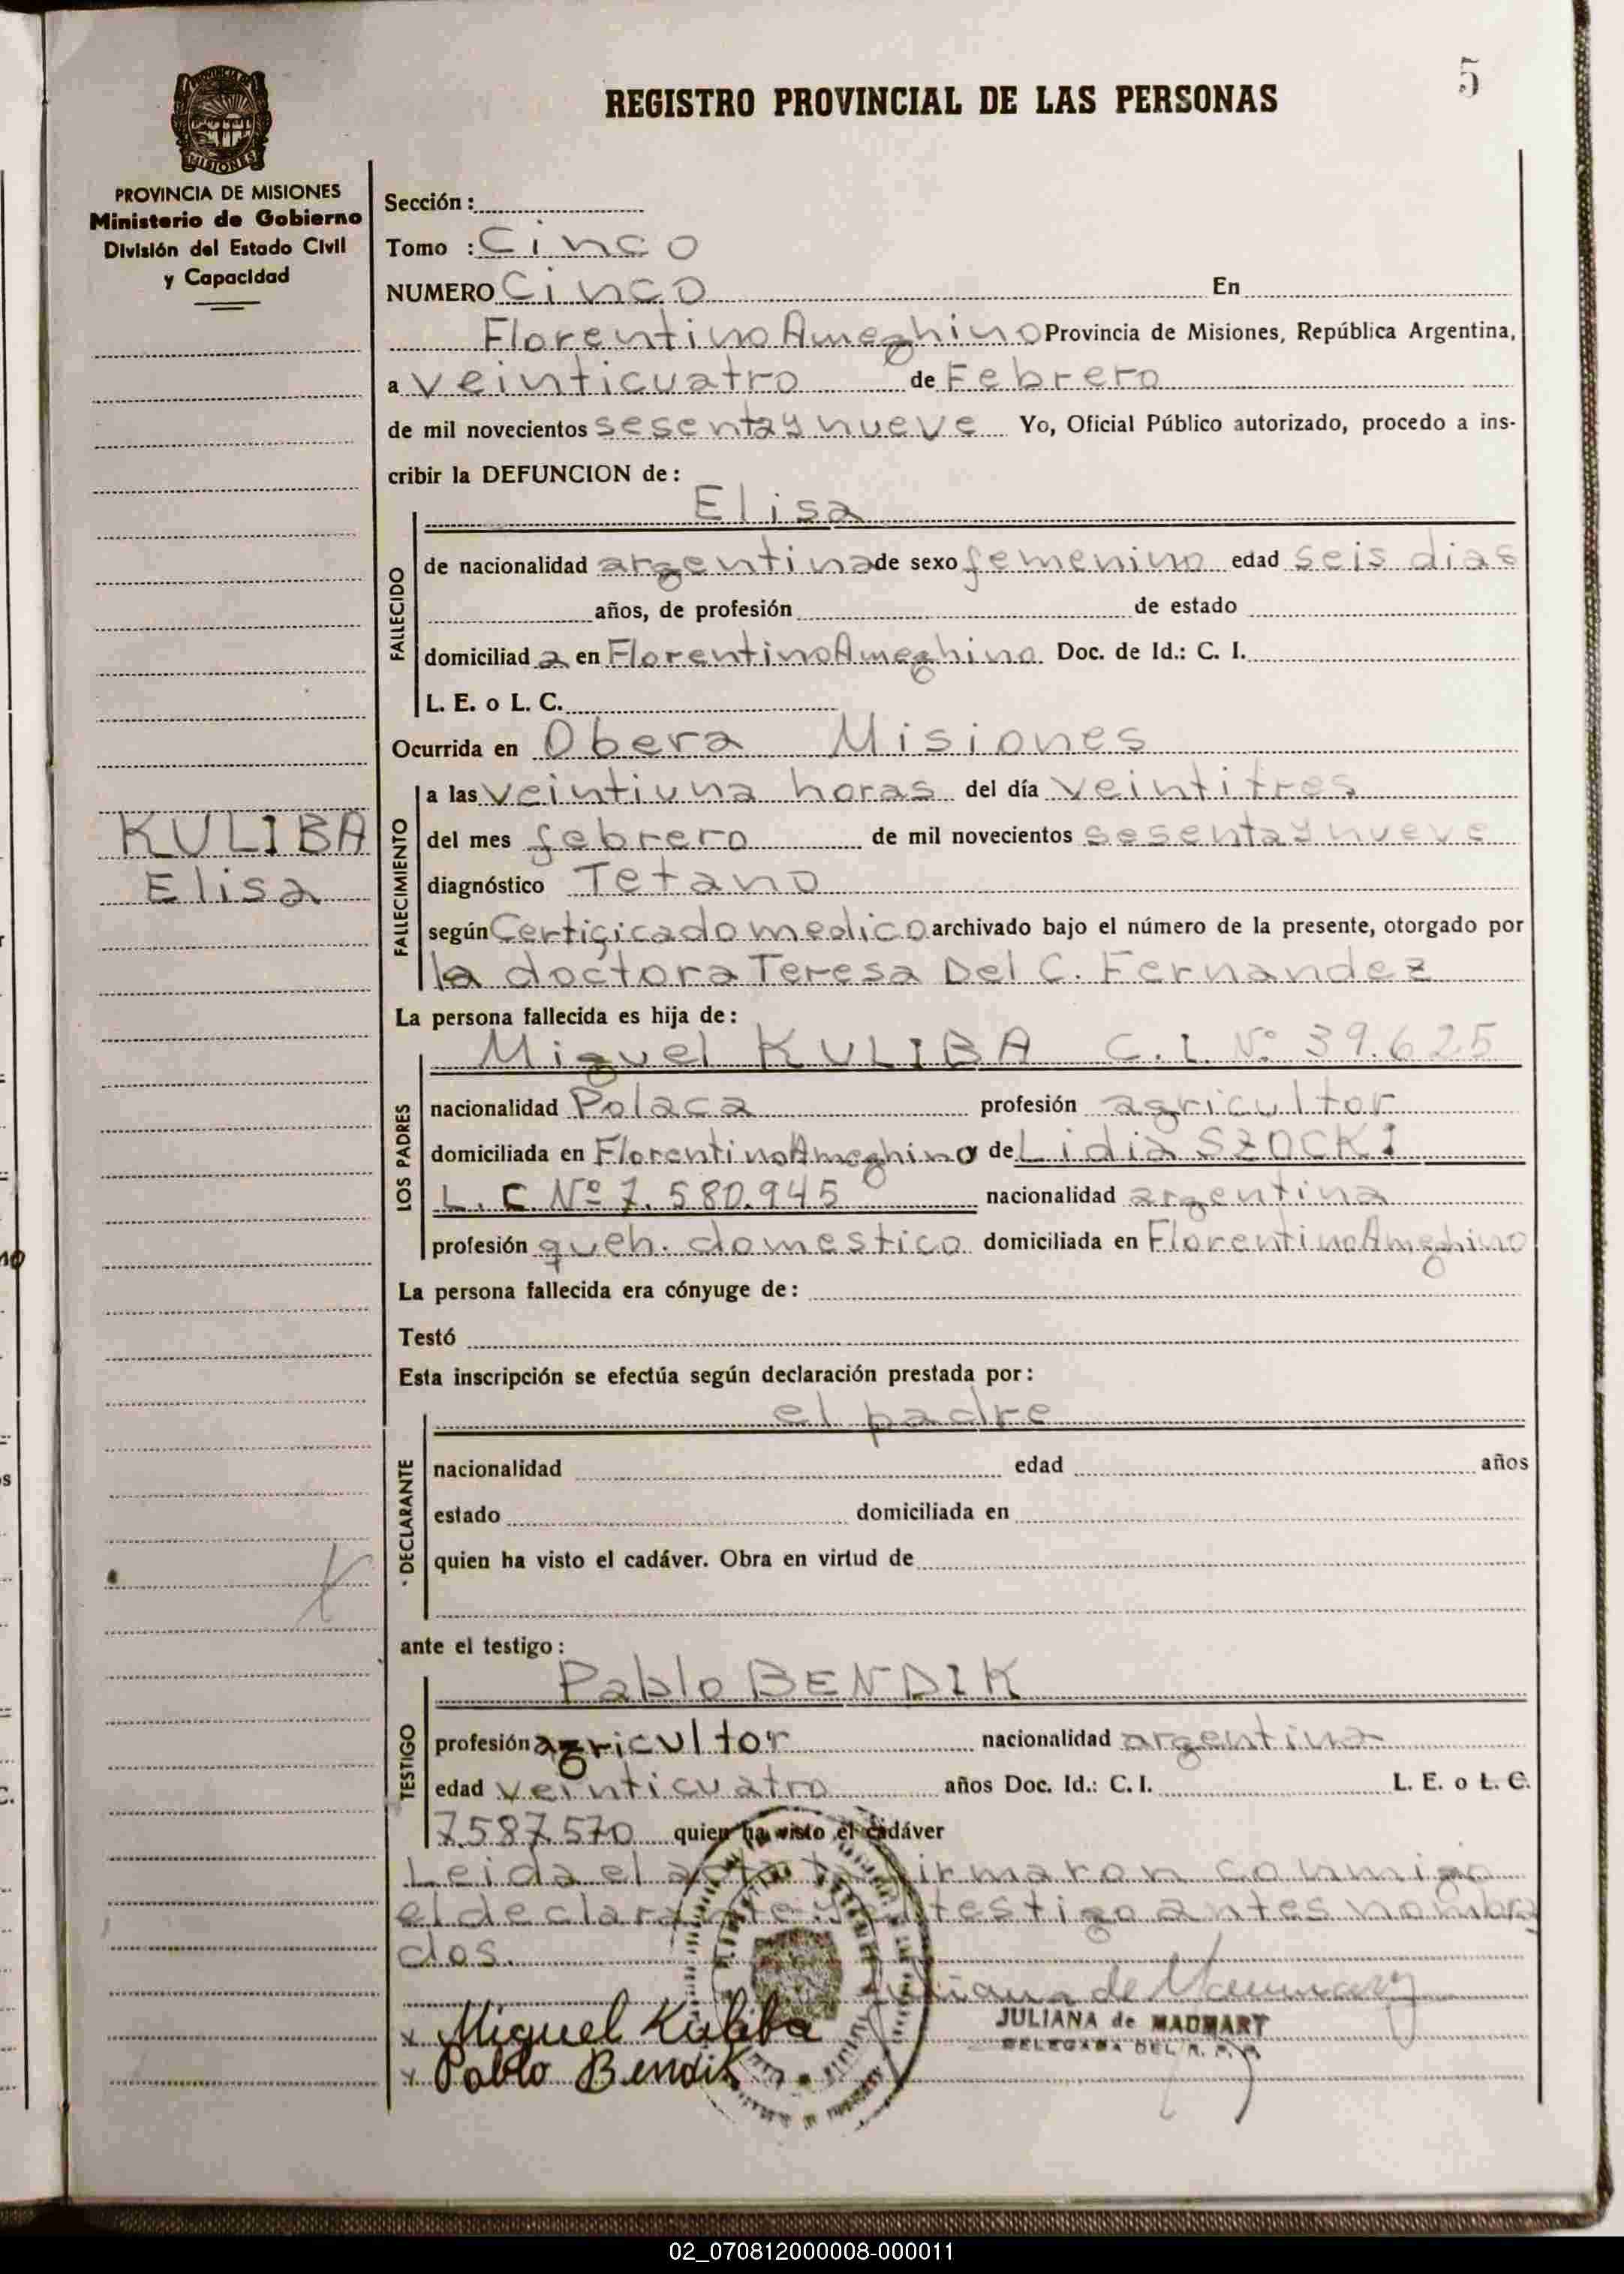 5
REGISTRO PROVINCIAL DE LAS PERSONAS
PROVINCIA DE MISIONES
Ministerio de Gobierno
División del Estado Civil
y Capacidad
Sección :
Tomo : Cinco
NUMERO Cinco En
Florentino Ameghino Provincia de Misiones, República Argentina,
a veinticuatro de Febrero
de mil novecientos sesenta y nueve Yo, Oficial Público autorizado, procedo a ins-
cribir la DEFUNCION de :
Elisa
FALLECIDO
de nacionalidad argentina de sexo femenino edad seis dias
años, de profesión de estado
domiciliad a en Florentino Ameghino. Doc. de Id.: C. I.
L. E. o L. C.
Ocurrida en Obera Misiones
FALLECIMIENTO
a las veintiuna horas del día veintitres
KULIBA
Elisa
del mes febrero de mil novecientos sesenta y nueve
diagnóstico Tetano
según Certificado medico archivado bajo el número de la presente, otorgado por
la doctora Teresa Del C. Fernandez
La persona fallecida es hija de :
LOS PADRES
Miguel KULIBA C.I. Nº 39.625
nacionalidad Polaca profesión agricultor
domiciliada en Florentino Ameghino y de Lidia SZOCKI
L.C Nº 7.580.945 nacionalidad argentina
profesión queh. domestico domiciliada en Florentino Ameghino
La persona fallecida era cónyuge de :
Testó
Esta inscripción se efectúa según declaración prestada por :
el padre
DECLARANTE
nacionalidad edad años
estado domiciliada en
quien ha visto el cadáver. Obra en virtud de
ante el testigo :
Pablo BENDIK
TESTIGO
profesión agricultor nacionalidad argentina
edad veinticuatro años Doc. Id.: C. I. L. E. o L. C.
7.587.570 quien ha visto el cadáver
Leida el acta la firmaron conmigo
el declarante y el testigo antes nombra
dos.
Juliana de
x Miguel Kuliba
JULIANA de MADMART
DELEGADA DEL R. P. P.
x Pablo Bendik
02_070812000008-000011